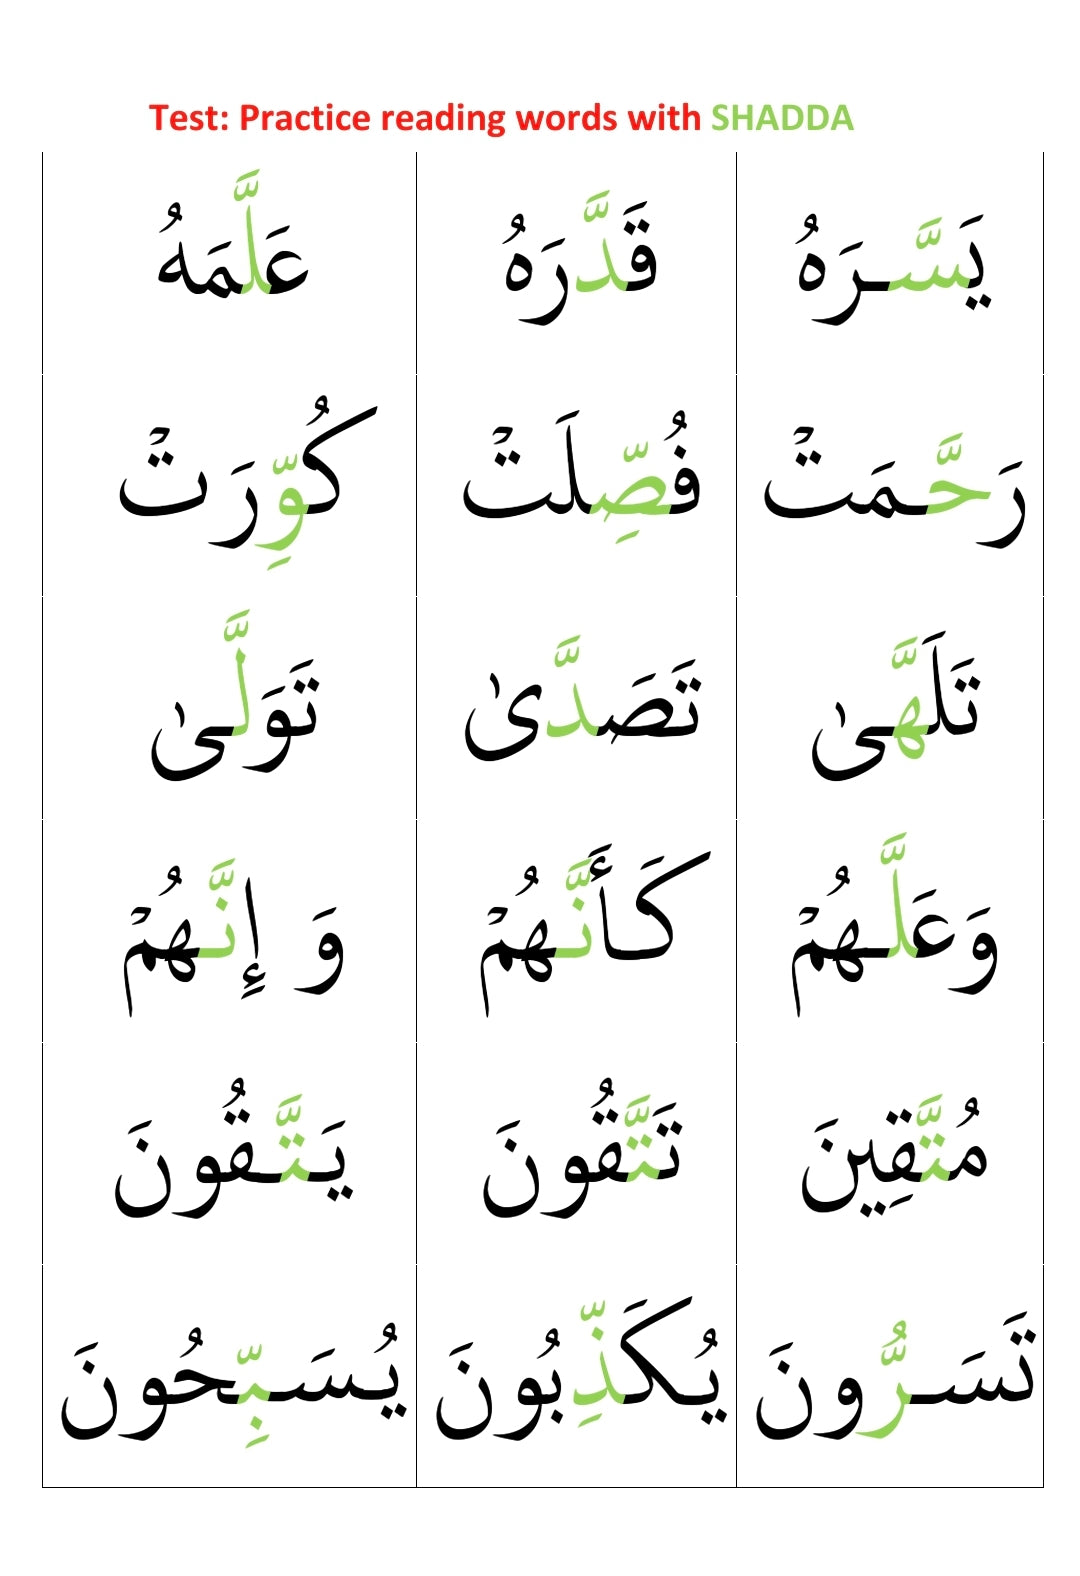 Test: Practice reading words with SHADDA
يَسَّرَهُ قَدَّرَهُ عَلَّمَهُ
رَحَّمَتْ فُصِّلَتْ كُوِّرَتْ
تَلَهَّىٰ تَصَدَّىٰ تَوَلَّىٰ
وَعَلَّهُمْ كَأَنَّهُمْ وَ إِنَّهُمْ
مُتَّقِينَ تَتَّقُونَ يَتَّقُونَ
تَسَرُّونَ يُكَذِّبُونَ يُسَبِّحُونَ